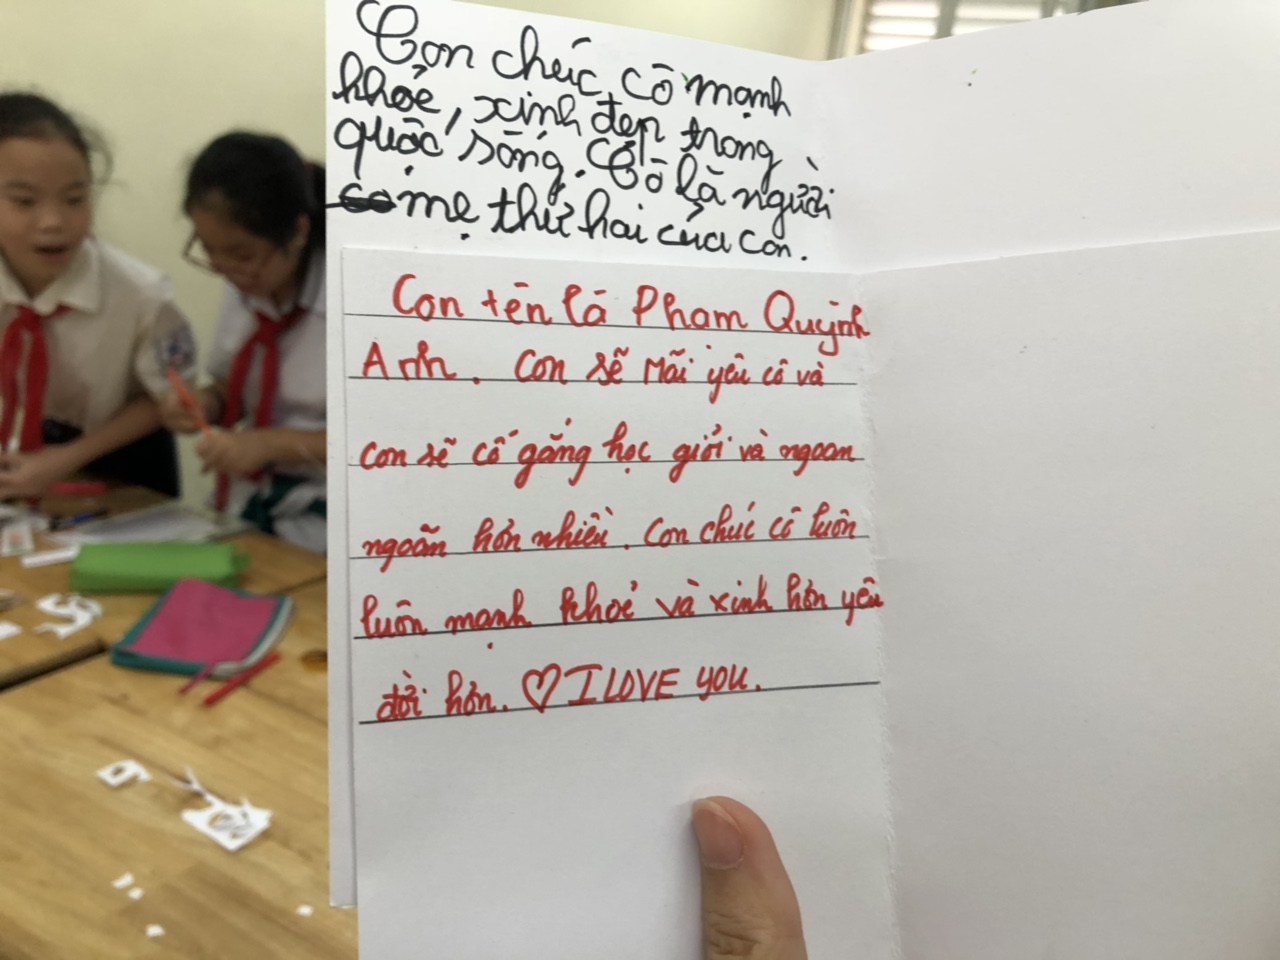 Con chúc cô mạnh
khỏe, xinh đẹp trong
quộc sống. Cô là người
mẹ thứ hai của con.
Con tên là Phạm Quỳnh
Anh. Con sẽ Mãi yêu cô và
con sẽ cố gắng học giỏi và ngoan
ngoãn hơn nhiều. Con chúc cô luôn
luôn mạnh khoẻ và xinh hơn yêu
đời hơn. ♡ I LOVE YOU.